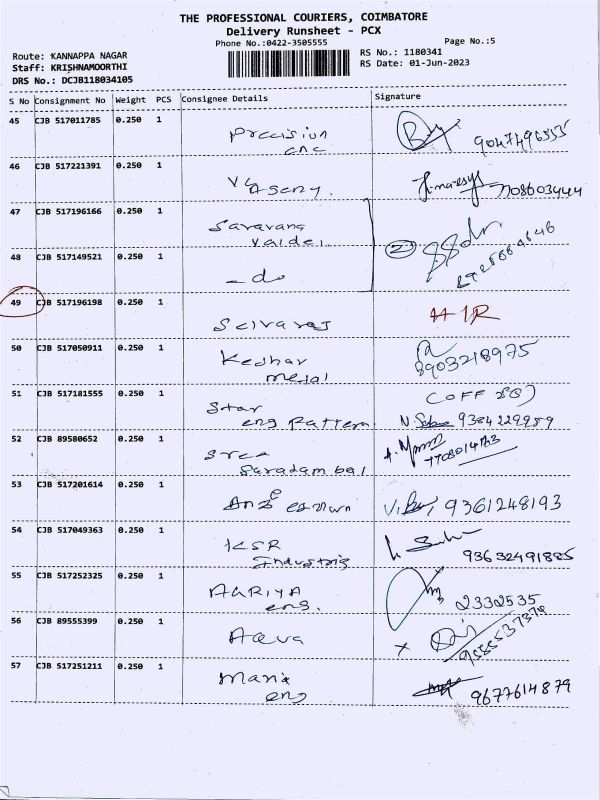 THE PROFESSIONAL COURIERS, COIMBATORE
Delivery Runsheet - PCX
Phone No.:0422-3505555
Page No.:5
Route: KANNAPPA NAGAR
RS No.: 1180341
Staff: KRISHNAMOORTHI
RS Date: 01-Jun-2023
DRS No.: DCJB118034105
S No Consignment No Weight PCS Consignee Details Signature
45 CJB 517011785 0.250 1
Precision
enc
46 CJB 517221391 0.250 1
47 CJB 517196166 0.250 1
Saravana
48 CJB 517149521 0.250 1
- do
2
49 CJB 517196198 0.250 1
Selvaraj
50 CJB 517050911 0.250 1
Keshar
metal
8903218975
51 CJB 517181555 0.250 1
Star
eng Pattern
9384229959
52 CJB 89580652 0.250 1
Sree
Saradambal
53 CJB 517201614 0.250 1
9361248193
54 CJB 517049363 0.250 1
KSR
Industris
55 CJB 517252325 0.250 1
AARIYA
eng.
2332535
56 CJB 89555399 0.250 1
Aqua
x
57 CJB 517251211 0.250 1
Maria
eng
9677614879